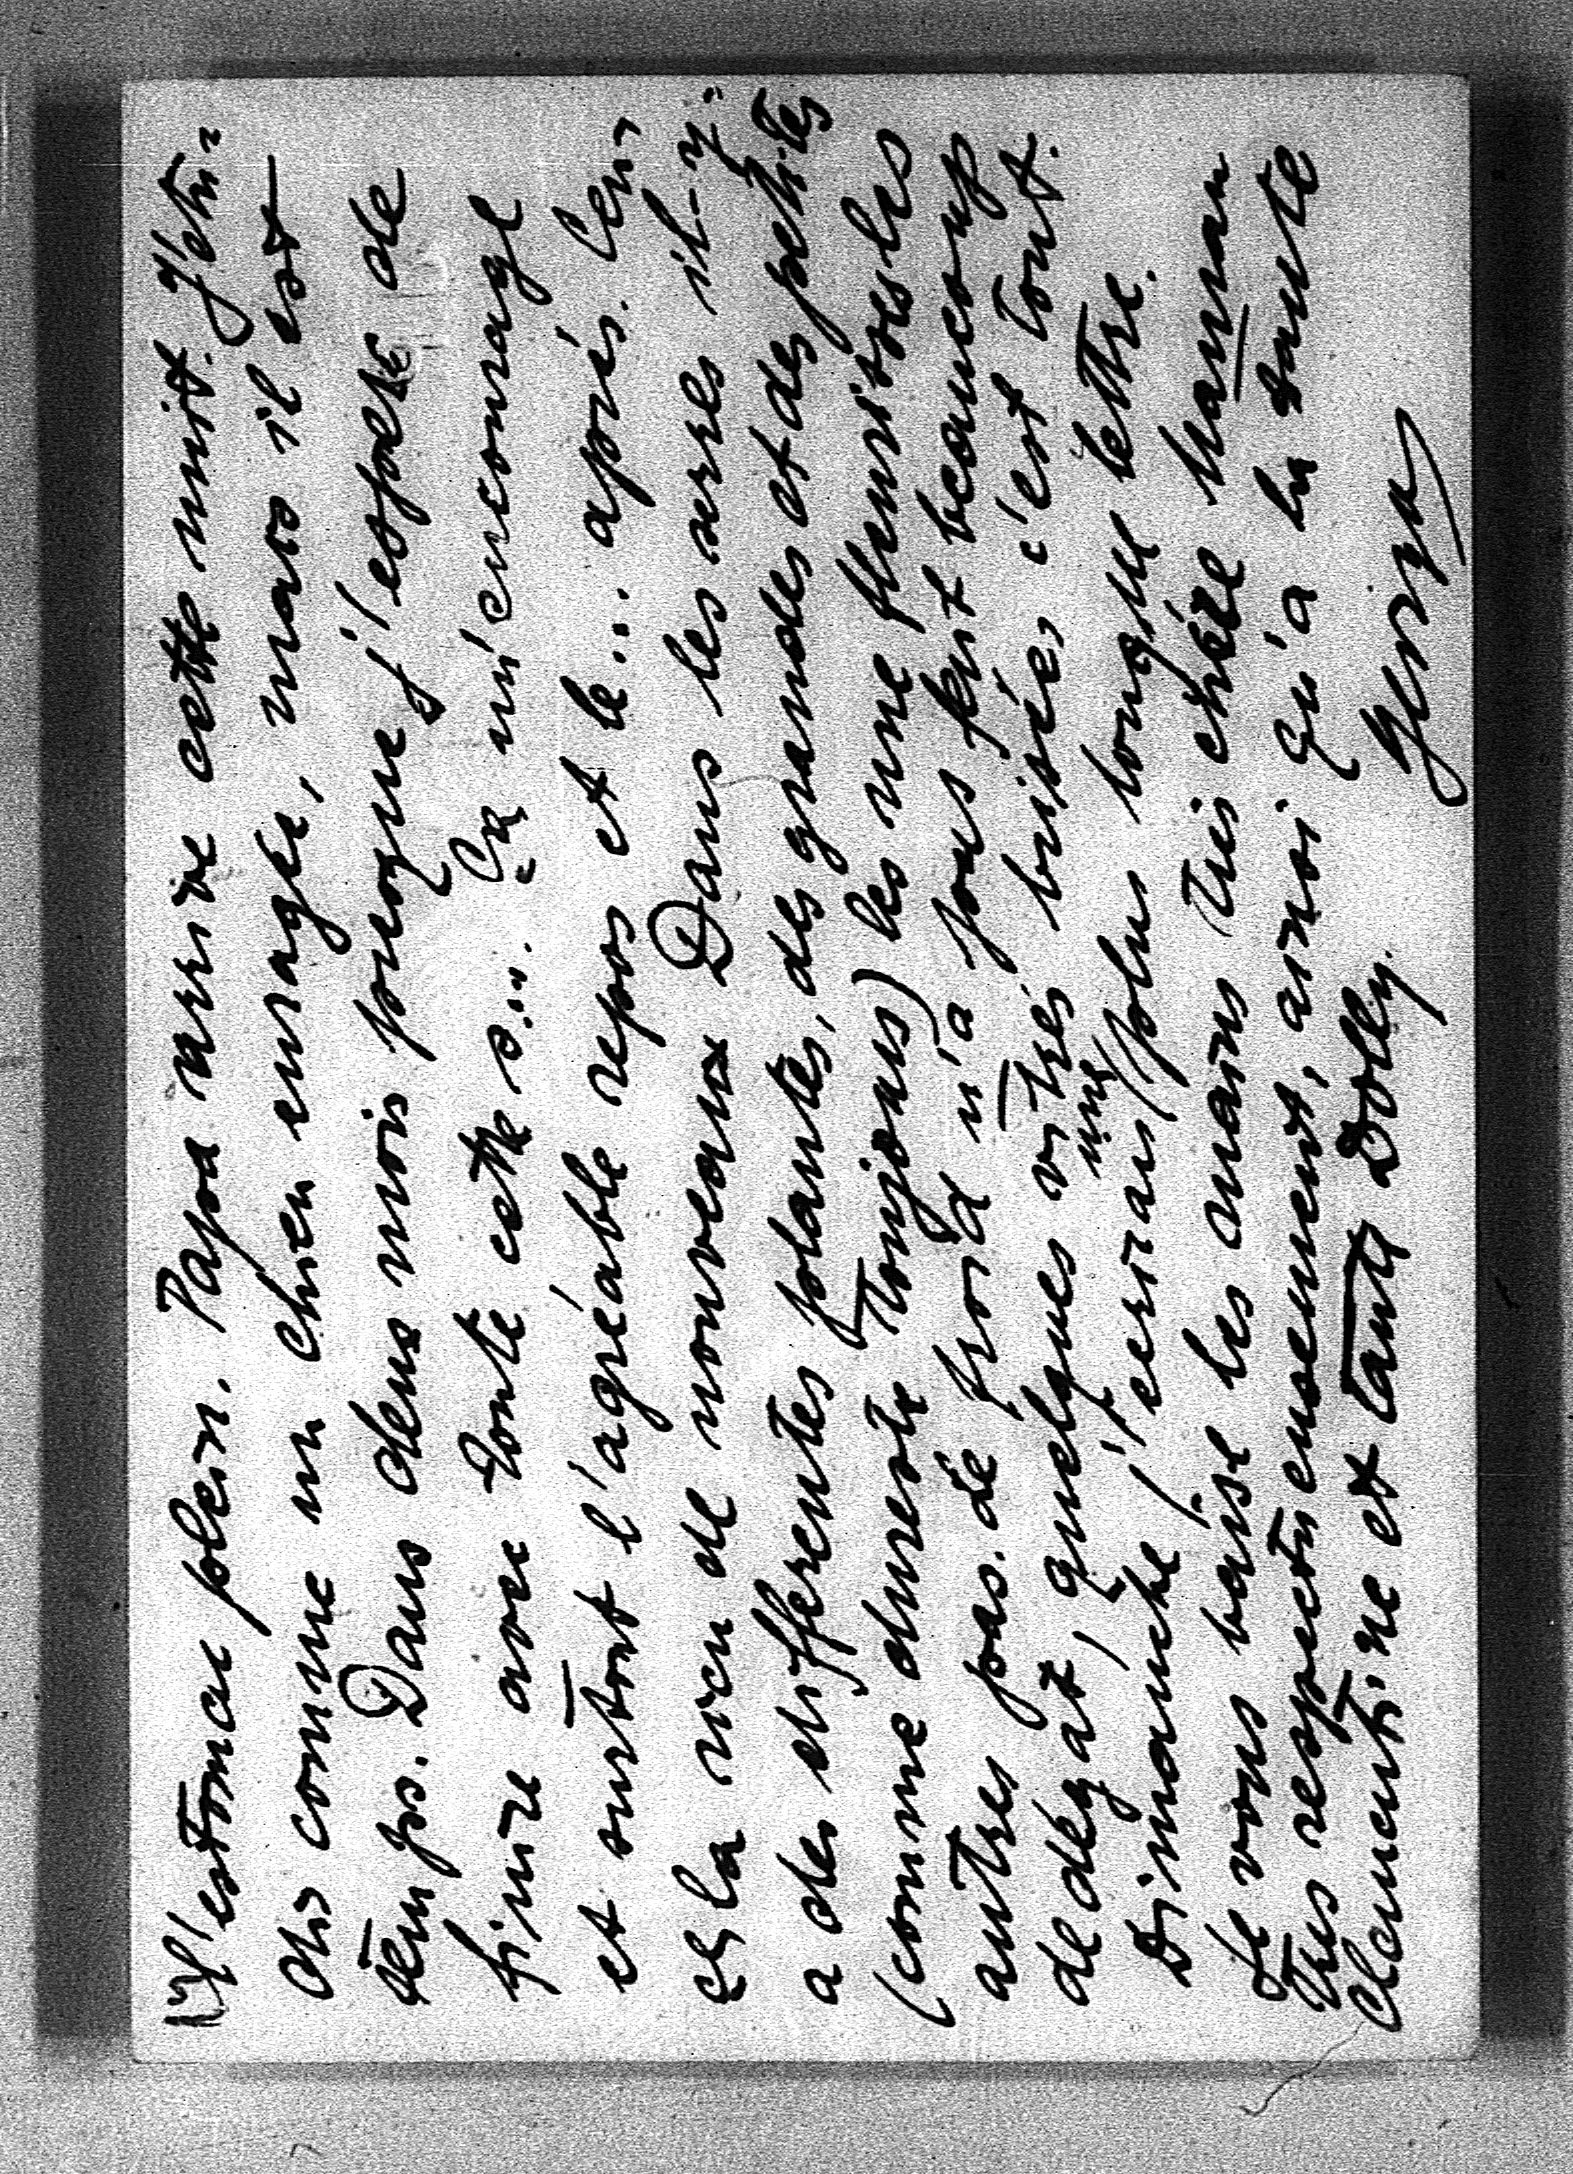 l'estomac plein. Papa arrive cette nuit. J'étu=
dis comme un chien enragée, mais il est
temps. Dans deux mois puisque j'espère de
finire avec toute cette s... Ça m'encourage
et surtout l'agréable repos et le... après. Ceu
a des differentes plantes, des grandes et des petites
(comme duresté toujours) les une fleurisses les
autres pas. de froid n'a pas fait beaucoup
de dégât, quelques vitrés brisées c'est tout.
Dimanche j'ecriais une plus longue lettre.
Je vous baise les mains très chére Maman
très respectueusement, ainsi qu'a la tante
Clementine et tante Dolly.